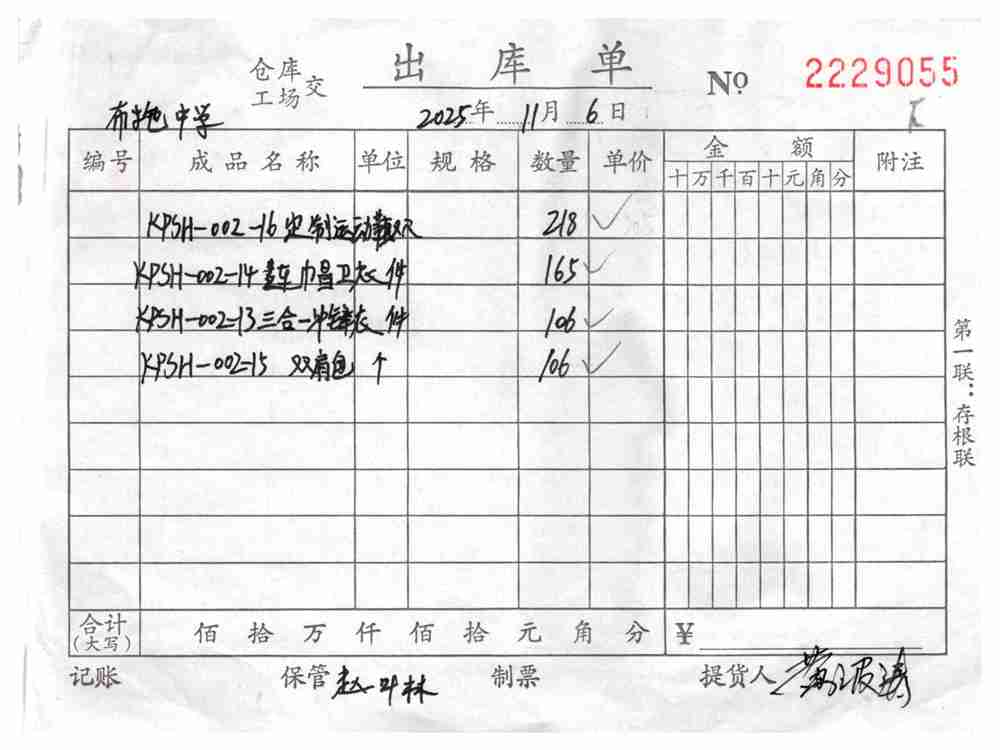 出库单
仓库
工场交
No 2229055
布拖中学
2025年11月6日
编号 成品名称 单位 规格 数量 单价 金额 附注
十万千百十元角分
KPSH-002-16 定制运动鞋 双 218
KPSH-002-14 卫衣 件 165
KPSH-002-13 三合一冲锋衣 件 106
KPSH-002-15 双肩包 个 106
第一联：存根联
合计(大写) 佰拾万仟佰拾元角分 ¥
记账 保管 赵叶林 制票 提货人